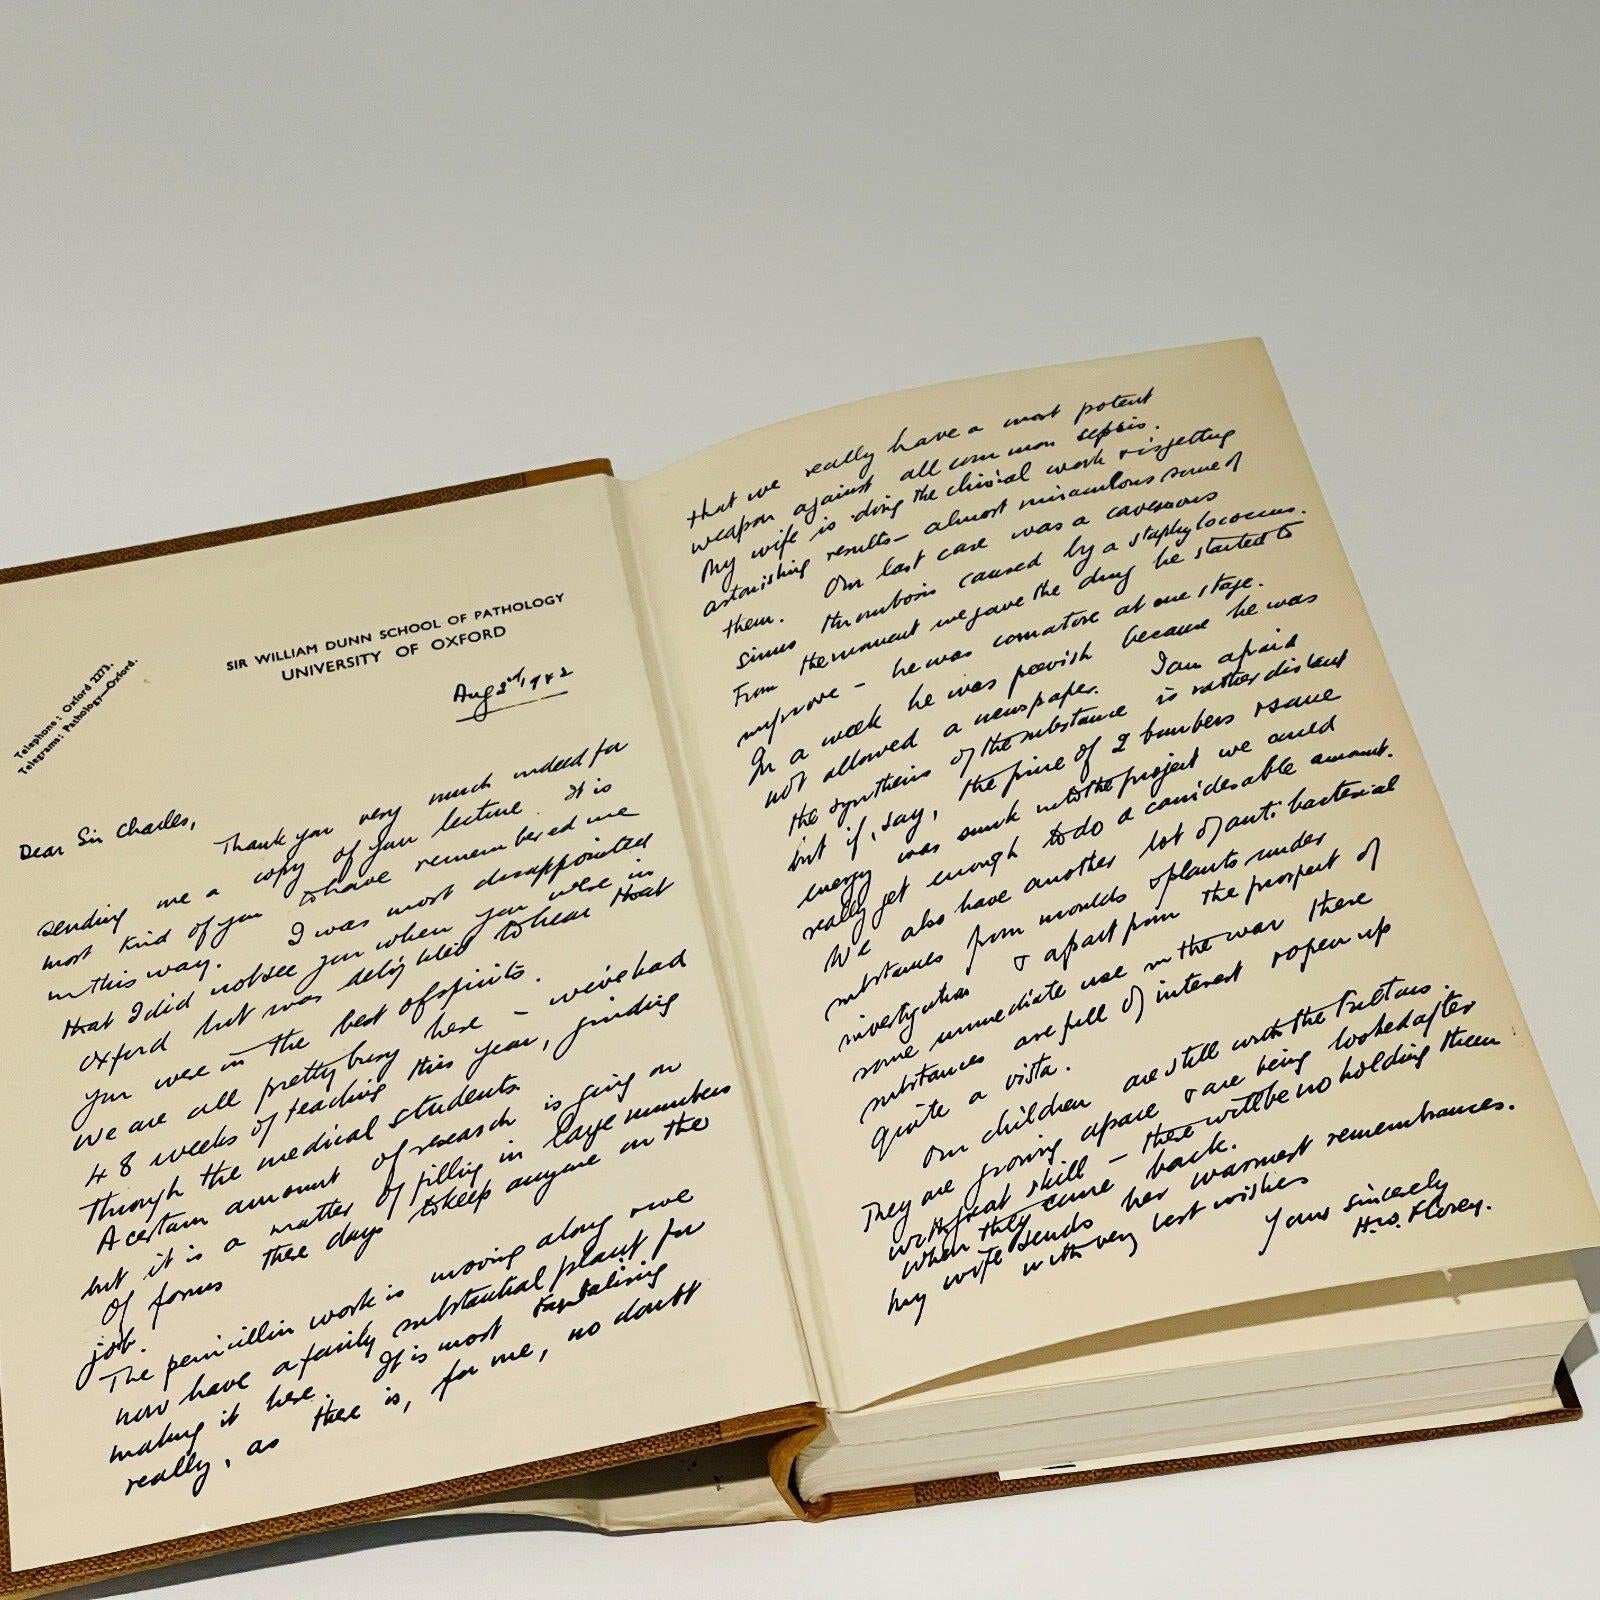 Telephone: Oxford 2273.
Telegrams: Pathology—Oxford.
SIR WILLIAM DUNN SCHOOL OF PATHOLOGY
UNIVERSITY OF OXFORD
Aug 2nd, 1942
Dear Sir Charles,
Thank you very much indeed for
sending me a copy of your lecture. It is
most kind of you to have remembered me
in this way. I was most disappointed
that I did not see you when you were in
Oxford but was delighted to hear that
you were in the best of spirits.
We are all pretty busy here – we've had
48 weeks of teaching this year, grinding
through the medical students.
A certain amount of research is going on
but it is a matter of filling in large numbers
of forms these days to keep anyone on the
job.
The penicillin work is moving along & we
now have a fairly substantial plant for
making it here. It is most tantalising
really, as there is, for me, no doubt
that we really have a most potent
weapon against all common sepsis.
My wife is doing the clinical work & is getting
astonishing results – almost miraculous some of
them. Our last case was a cavernous
sinus thrombosis caused by a staphylococcus.
From the moment we gave the drug he started to
improve – he was comatose at one stage.
In a week he was peevish because he was
not allowed a newspaper. I am afraid
the synthesis of the substance is rather distant
but if, say, the price of 2 bombers & same
energy was sunk into the project we could
really get enough to do a considerable amount.
We also have another lot of anti-bacterial
substances from moulds & plants under
investigation & apart from the prospect of
some immediate use in the war there
substances are full of interest & open up
quite a vista.
Our children are still with the Fultons.
They are growing apace & are being looked after
with great skill – there will be no holding them
when they come back.
My wife sends her warmest remembrances.
with very best wishes
Yours sincerely
H.W. Florey.